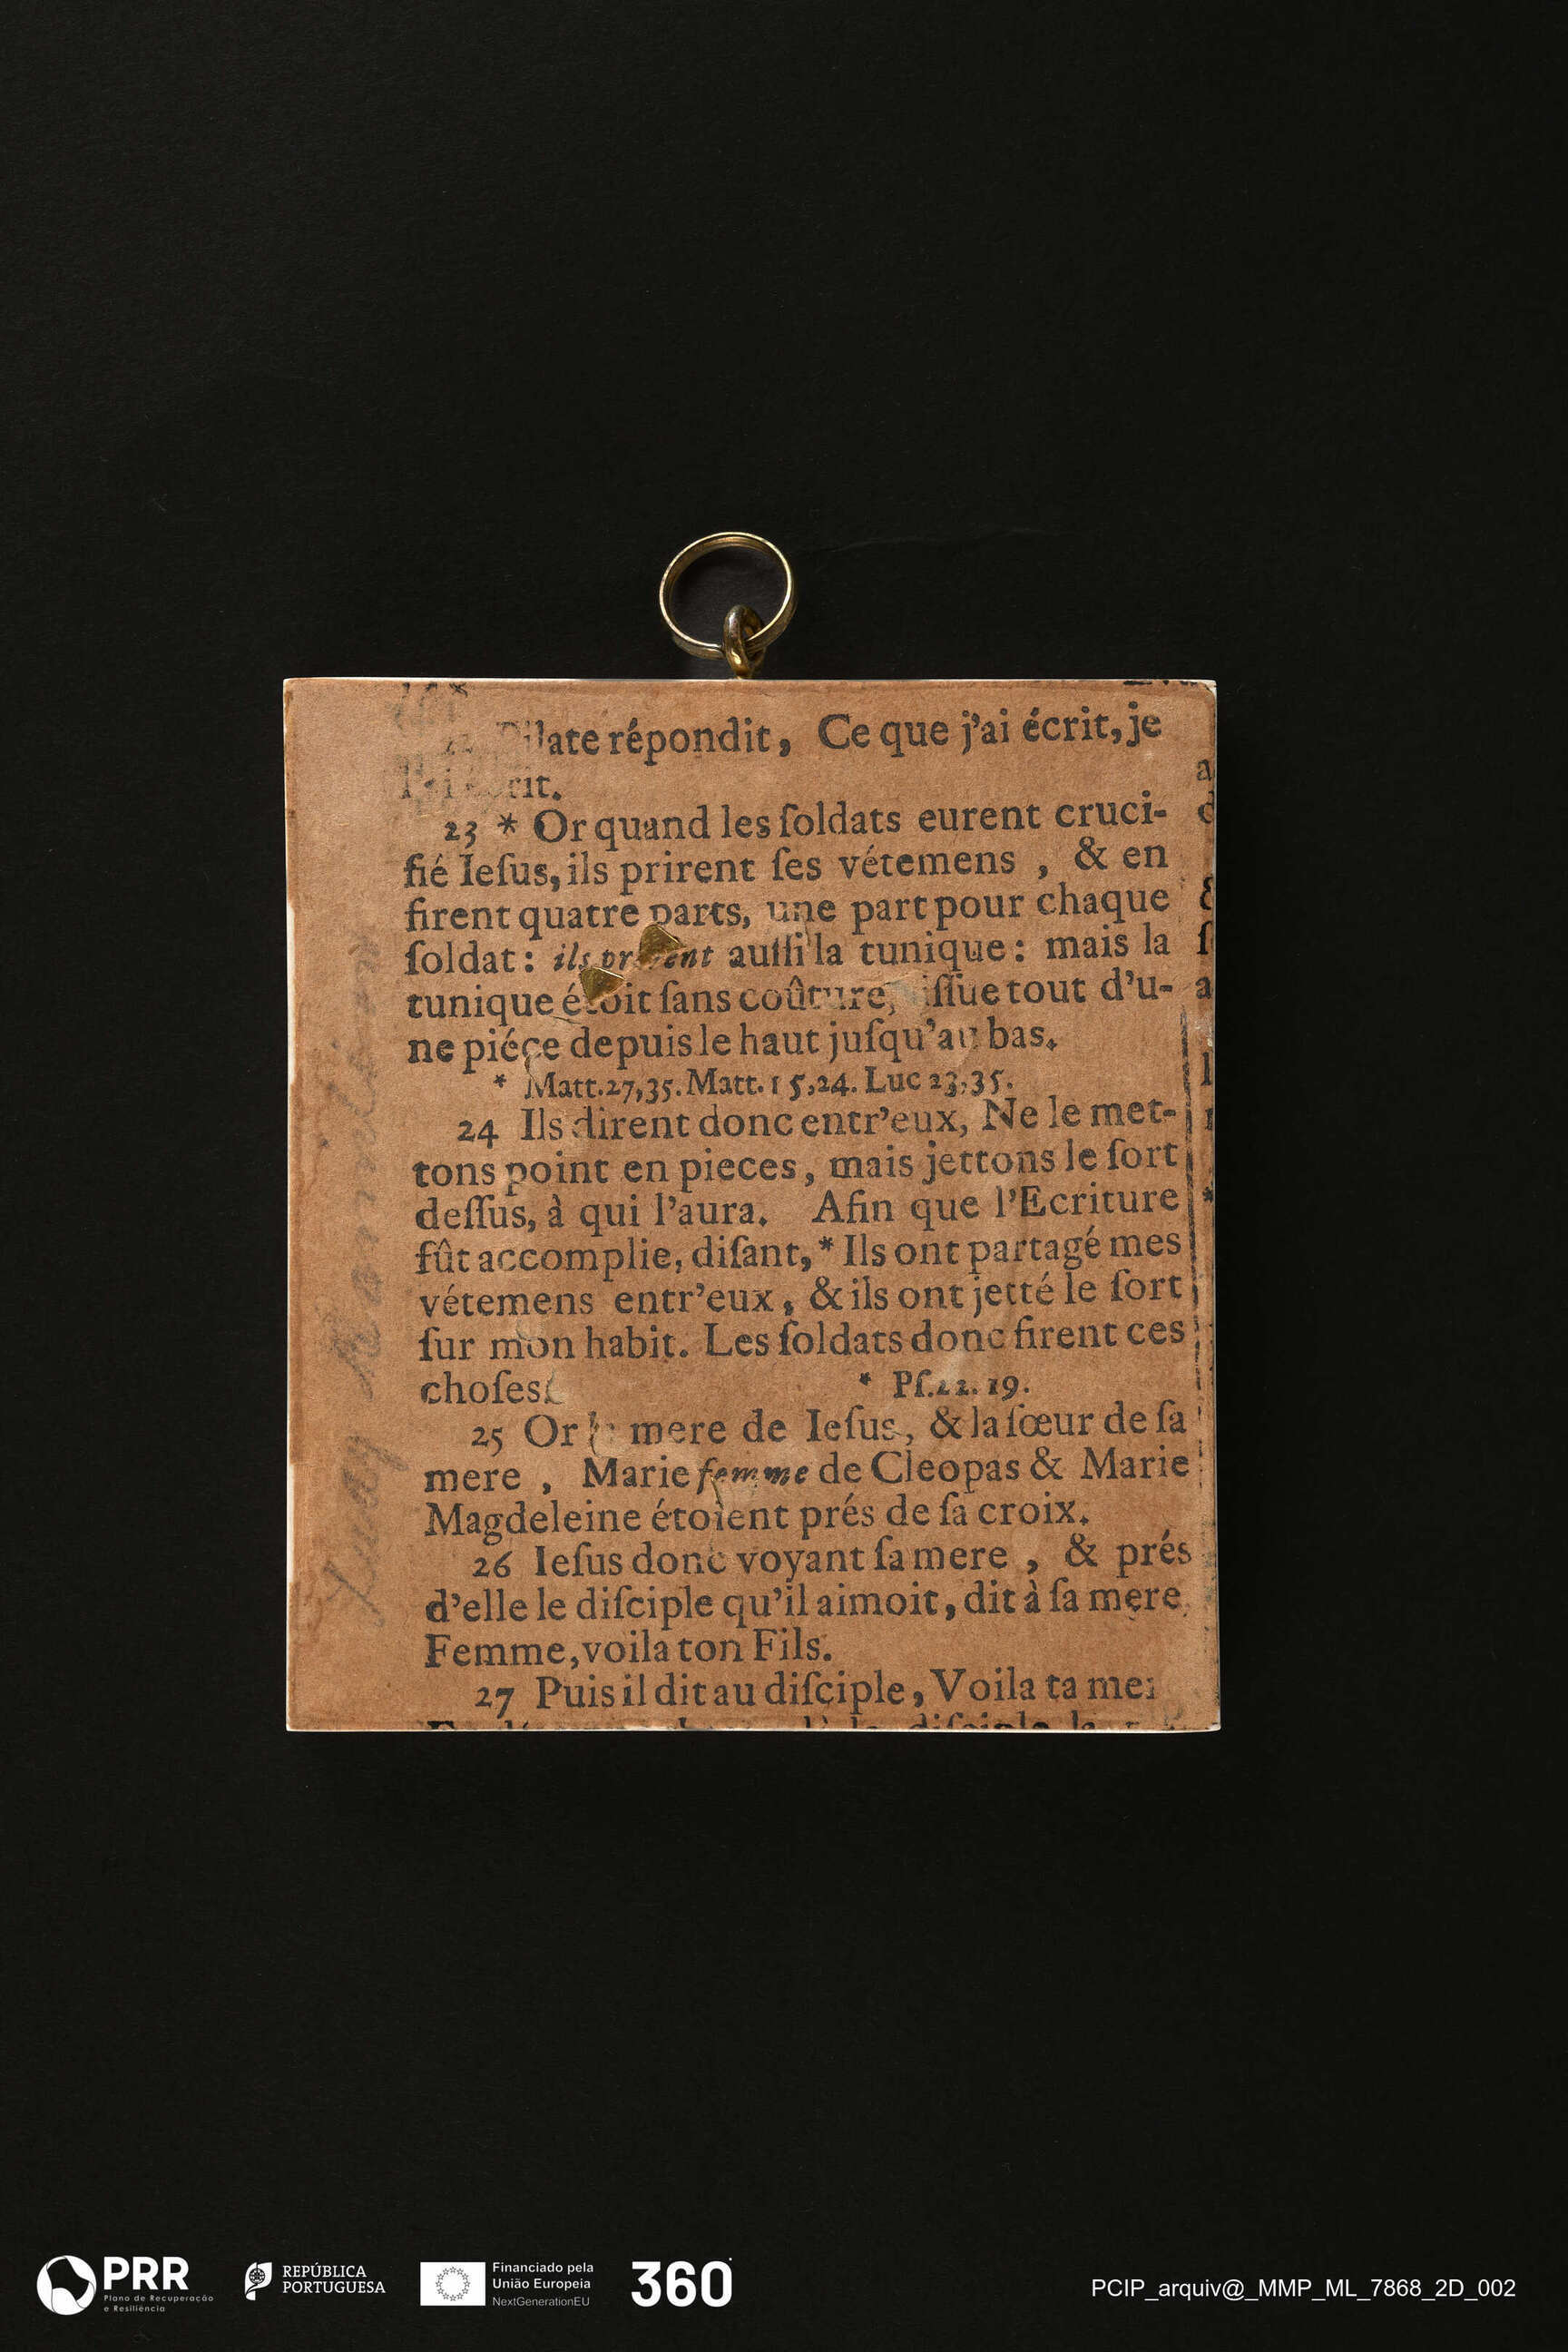 Pilate répondit, Ce que j'ai écrit, je
23 * Or quand les ſoldats eurent cruci-
fié Ieſus, ils prirent ſes vétemens , & en
firent quatre parts, une part pour chaque
ſoldat: ils prirent auſſi la tunique: mais la
tunique étoit ſans coûture, iſſue tout d'u-
ne piéce depuis le haut juſqu'au bas.
* Matt.27,35. Matt. 15,24. Luc 23,35.
24 Ils dirent donc entr'eux, Ne le met-
tons point en pieces, mais jettons le ſort
deſſus, à qui l'aura. Afin que l'Ecriture
fût accomplie, diſant, * Ils ont partagé mes
vétemens entr'eux, & ils ont jetté le ſort
ſur mon habit. Les ſoldats donc firent ces
choſes.
* Pſ.22. 19.
25 Or la mere de Ieſus, & la ſœur de ſa
mere , Marie femme de Cleopas & Marie
Magdeleine étoient prés de ſa croix.
26 Ieſus donc voyant ſa mere , & prés
d'elle le diſciple qu'il aimoit, dit à ſa mere,
Femme, voila ton Fils.
27 Puis il dit au diſciple, Voila ta
PRR
Plano de Recuperação
e Resiliência
REPÚBLICA
PORTUGUESA
Financiado pela
União Europeia
NextGenerationEU
360
PCIP_arquiv@_MMP_ML_7868_2D_002